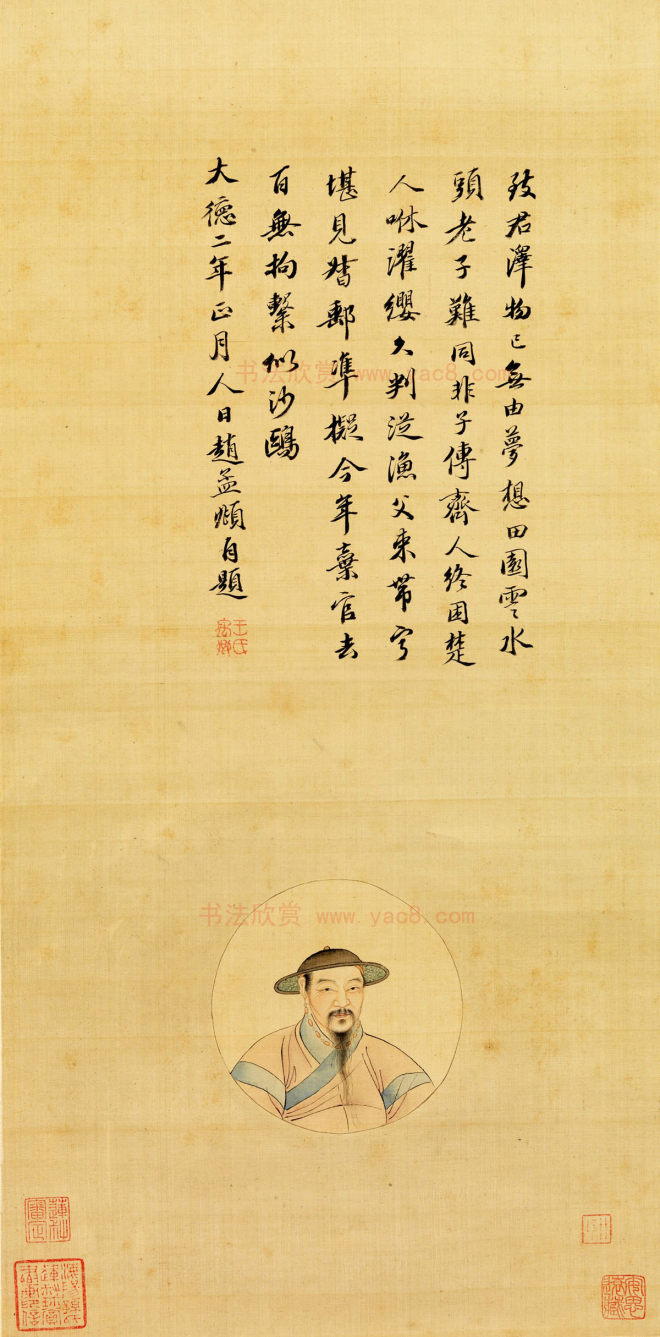 致君澤物已無由夢想田園雲水
頭老子難同非子傳齊人終困楚
人咻濯纓久判從漁父束帶寧
堪見督郵準擬今年棄官去
百無拘繫似沙鷗
大德二年正月人日趙孟頫自題
书法欣赏 www.yac8.com
书法欣赏 www.yac8.com
安思遠藏